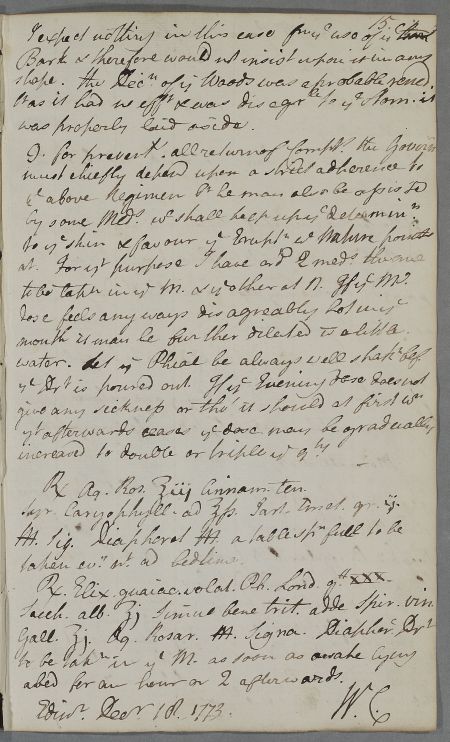 15.
I expect nothing in this case from yᵉ use of yᵉ
Bark & therefore would not insist upon it in any
shape. The Decⁿ of yᵉ Woods was a probable remed.
But as it had no effᵗ & was disagrᵇˡᵉ to yᵉ Stom. it
was properly laid aside.
For prevent. all return of Complᵗ. the Governʳ
must chiefly depend upon a strict adherence to
yᵉ above Regimen he may also be assisted
by some Medˢ. wᶜ shall keep up yᵉ determinⁿ.
to yᵉ skin & favour yᵉ Eruptⁿ wᶜ Nature points
at. For yᵗ purpose I have ordᵈ 2 medˢ. the one
to be takⁿ in yᵉ M. & yᵉ other at N. If yᵉ Mᵍ.
dose feels any ways disagreably hot in yᵉ
mouth it may be further diluted wᵗ a little
water. Let yᵉ Phial be always well shakⁿ bef.
yᵉ Drᵗ is poured out. If yᵉ Evening dose does not
give any sickness or tho' it should at first wⁿ
yᵗ afterwards ceases yᵉ dose may be gradually
increased to double or triple yᵉ qᵗʸ
℞ Aq. Ros. ℥iij Cinnam. ten.
Syr. Caryophyll. ad ℥ß. Tart. Emet. gr. ij.
M. Sig. Diaphoret M. a table spⁿ full to be
taken evʸ nᵗ. ad bedtime.
℞. Elix. guaiac. volat. Ph. Lond. gᵗᵗ XXX.
Sacch. alb. ʒj simul bene trit. adde Spir. vin.
Gall. ʒj. Aq. Rosar. M. Signa. Diaphor. Drᵗ
to be takⁿ in yᵉ M. as soon as awake lying
abed for an hour or 2 afterwards.
Edinʳ. Decʳ 18. 1773. W. C